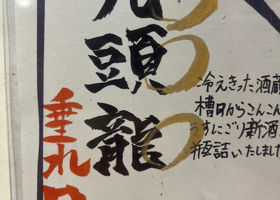 九頭龍
冷えきった酒蔵
槽口からこんこん
うすにごり新酒
瓶詰いたしまし
垂れ口